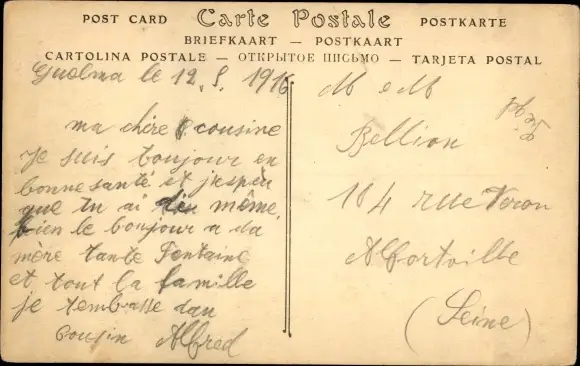 POST CARD Carte Postale POSTKARTE
BRIEFKAART — POSTKAART
CARTOLINA POSTALE — ОТКРЫТОЕ ПИСЬМО — TARJETA POSTAL
Guelma le 12. 8. 1916
ma chère cousine
Je suis toujour en
bonne santé et jespèu
que tu ai de meme,
bien le bonjour a da
mère tante Fontaine
et tout la famille
je tembrasse dan
cousin Alfred
M e M
Bellion
184 rue Veron
Alfortville
(Seine)